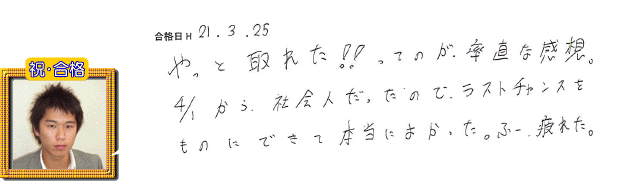 合格日 H 21.3.25
祝・合格
やっと取れた!!ってのが、率直な感想。
4/1から、社会人だったので、ラストチャンスを
ものにできて本当によかった。ふー、疲れた。